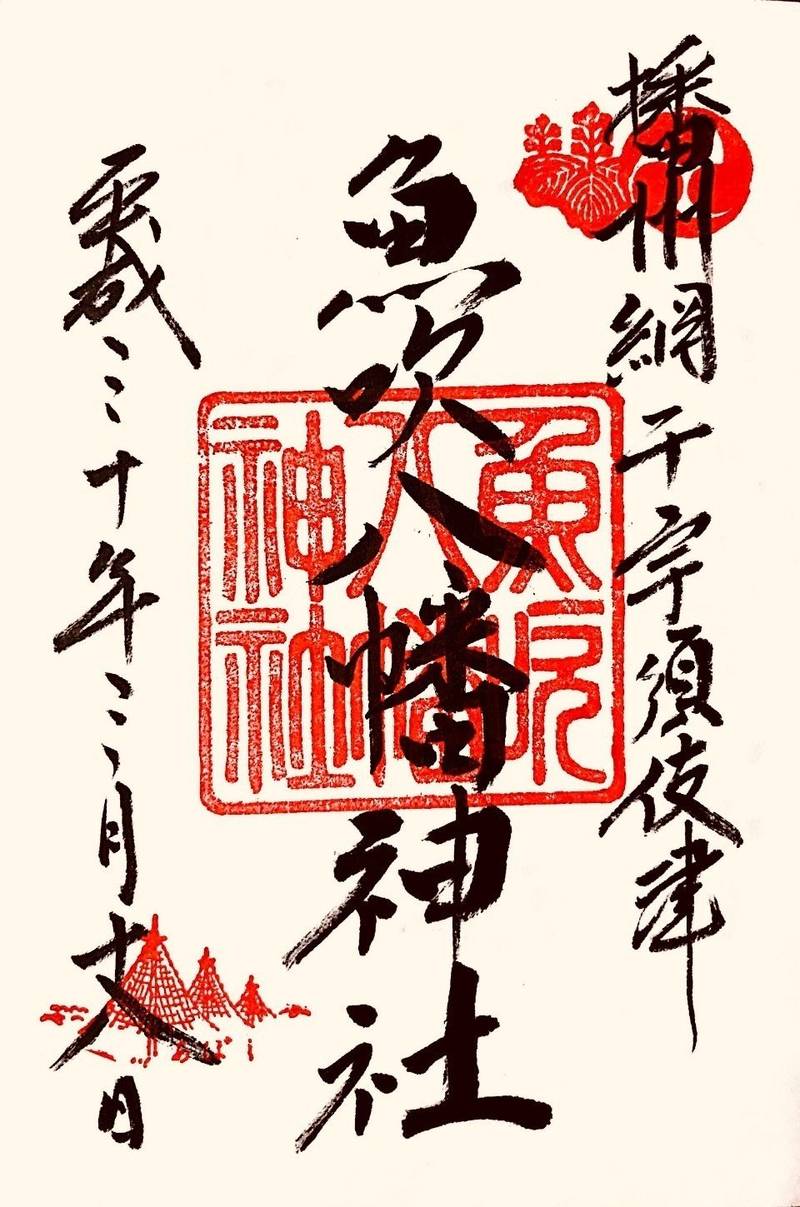 播州網干宇須伎津
魚吹八幡神社
平成三十年三月十八日
魚吹
八幡
神社